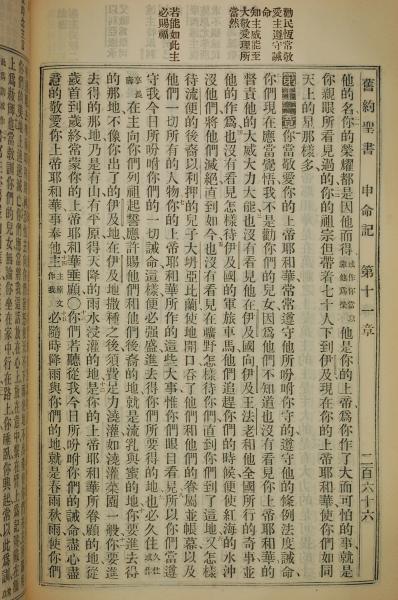 舊約聖書 申命記 第十一章 二百六十六
他的名你的榮耀都是因他而得 他是你的上帝爲你作了大而可怕的事就是
你親眼所看見過的你的祖宗但帶着七十人下到伊及現在你的上帝耶和華使你們如同
天上的星那樣多
勸民恆常敬
愛主遵守誡
命
知主威能至
大敬愛理所
當然
若能如此主
必賜福
你當敬愛你的上帝耶和華常常遵守他所吩咐你守的遵守他的條例法度誡命
你們現在應當覺悟我不是勸你們的兒女因爲他們不知道也沒有看見你上帝耶和華的
督責他的大威大力大能也沒有看見他在伊及國向伊及王法老和他全國所行的奇事並
他的作爲也沒有看見怎樣待伊及國的軍旅車馬他們追趕你們的時候便使紅海的水沖
沒他們將他們滅絕直到如今也沒有看見在曠野怎樣待你們直到你們到了這地又怎樣
待流便的後裔以利押的兒子大坍亞比蘭使地開口吞了他們和他們的眷屬並帳幕以及
他們一切所有的人物你的上帝耶和華所作的這些大事惟你們眼目看見所以你們當遵
守我今日所吩咐你們的一切誡命這樣便必強盛進去得你們所要得的地也必久住
在主向你們列祖起誓應許賜他們和他們後裔的地就是流乳與蜜的地你要進去得
的那地不像你出了的伊及地在伊及地撒種之後須費足力澆灌如澆灌菜園一般你要進
去得的那地乃是有山有平原得天降的雨水浸灌的地是你的上帝耶和華所眷顧的地從
歲首到歲終常蒙你的上帝耶和華垂顧○你們若聽從我今日所吩咐你們的誡命盡心盡
意的敬愛你上帝耶和華事奉他主 主原文作我 必隨時降雨與你們的地就是春雨秋雨使你們